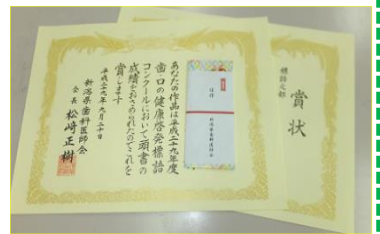 標語之部
賞状
あなたの作品は平成二十九年度
歯・口の健康啓発標語
コンクールにおいて頭書の
成績をおさめられたのでこれを
賞します
平成二十九年九月二十日
新潟県歯科医師会
会長 松﨑正樹